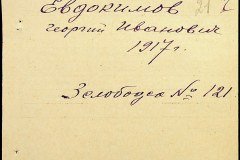 Евдокимов
Георгий Иванович
1917 г.
№ 121